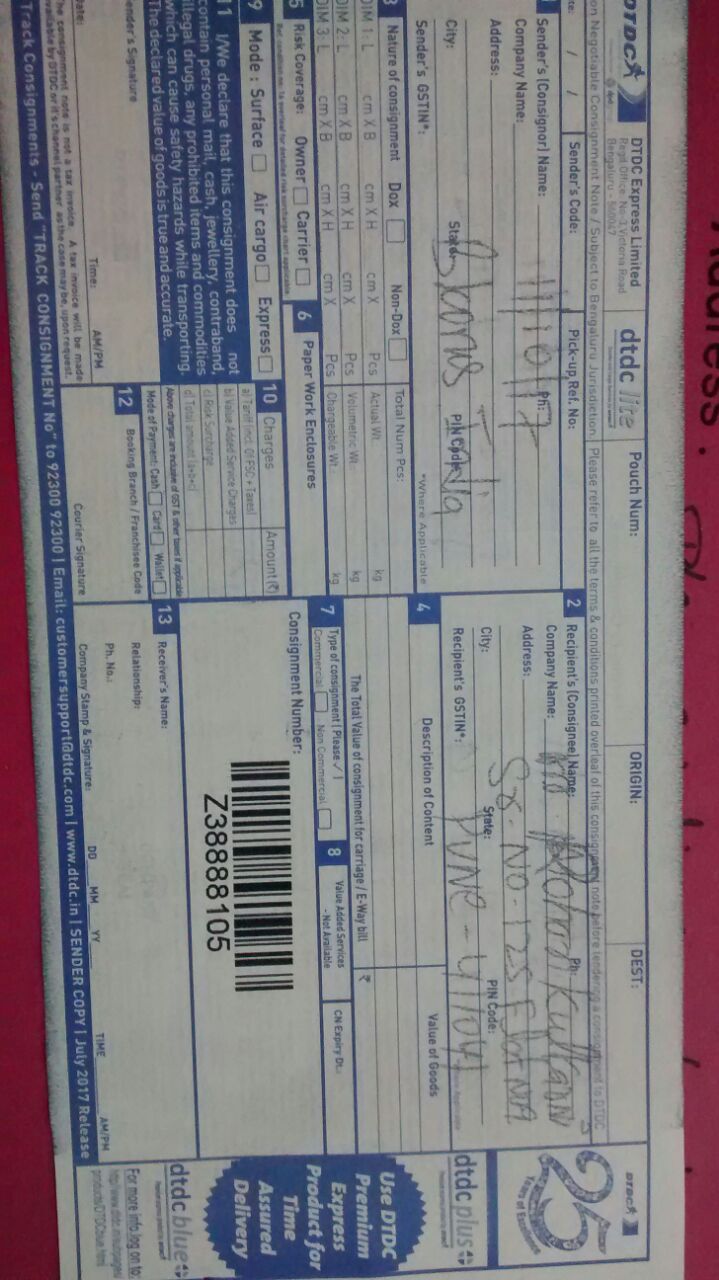 DTDC
DTDC Express Limited
Regd Office: No-3, Victoria Road
Bengaluru - 560047
dtdc lite
Pouch Num:
ORIGIN:
DEST:
on Negotiable Consignment Note / Subject to Bengaluru Jurisdiction. Please refer to all the terms & conditions printed overleaf of this consignment note before tendering a consignment to DTDC
te: / / Sender's Code: Pick-up Ref. No:
Sender's (Consignor) Name: Ph:
11/10/17
Company Name:
Address:
City: State: PIN Code:
Sender's GSTIN*: *Where Applicable
2 Recipient's (Consignee) Name: Ph:
Company Name:
Address:
NO 125
City: State: PIN Code:
PUNE - 411041
Recipient's GSTIN*:
3 Nature of consignment Dox Non-Dox Total Num Pcs:
DIM 1: L cm X B cm X H cm X Pcs Actual Wt. kg
DIM 2: L cm X B cm X H cm X Pcs Volumetric Wt. kg
DIM 3: L cm X B cm X H cm X Pcs Chargeable Wt. kg
4 Description of Content Value of Goods
The Total Value of consignment for carriage / E-Way bill ₹
5 Risk Coverage: Owner Carrier
6 Paper Work Enclosures
7 Type of consignment (Please ✓)
Commercial Non Commercial
8 Value Added Services
- Not Available
CN Expiry Dt.:
9 Mode: Surface Air cargo Express
10 Charges Amount (₹)
a) Tariff (incl. Of FSC + Taxes)
b) Value Added Service Charges
c) Risk Surcharge
d) Total amount (a+b+c)
Above charges are inclusive of GST & other taxes if applicable
Mode of Payment: Cash Card Wallet
Consignment Number:
Z38888105
11 I/We declare that this consignment does not
contain personal mail, cash, jewellery, contraband,
illegal drugs, any prohibited items and commodities
which can cause safety hazards while transporting.
The declared value of goods is true and accurate.
Sender's Signature
Date: Time: AM/PM
The consignment note is not a tax invoice. A tax invoice will be made
available by DTDC or it's channel partner as the case may be, upon request.
12 Booking Branch / Franchisee Code
Courier Signature
13 Receiver's Name:
Relationship:
Ph. No.:
Company Stamp & Signature:
DD MM YY TIME AM/PM
Track Consignments - Send "TRACK CONSIGNMENT No" to 92300 92300 | Email: customersupport@dtdc.com | www.dtdc.in | SENDER COPY | July 2017 Release
DTDC
25
Years of Excellence
dtdc plus
Use DTDC
Premium
Express
Product for
Time
Assured
Delivery
dtdc blue
For more info, log on to: